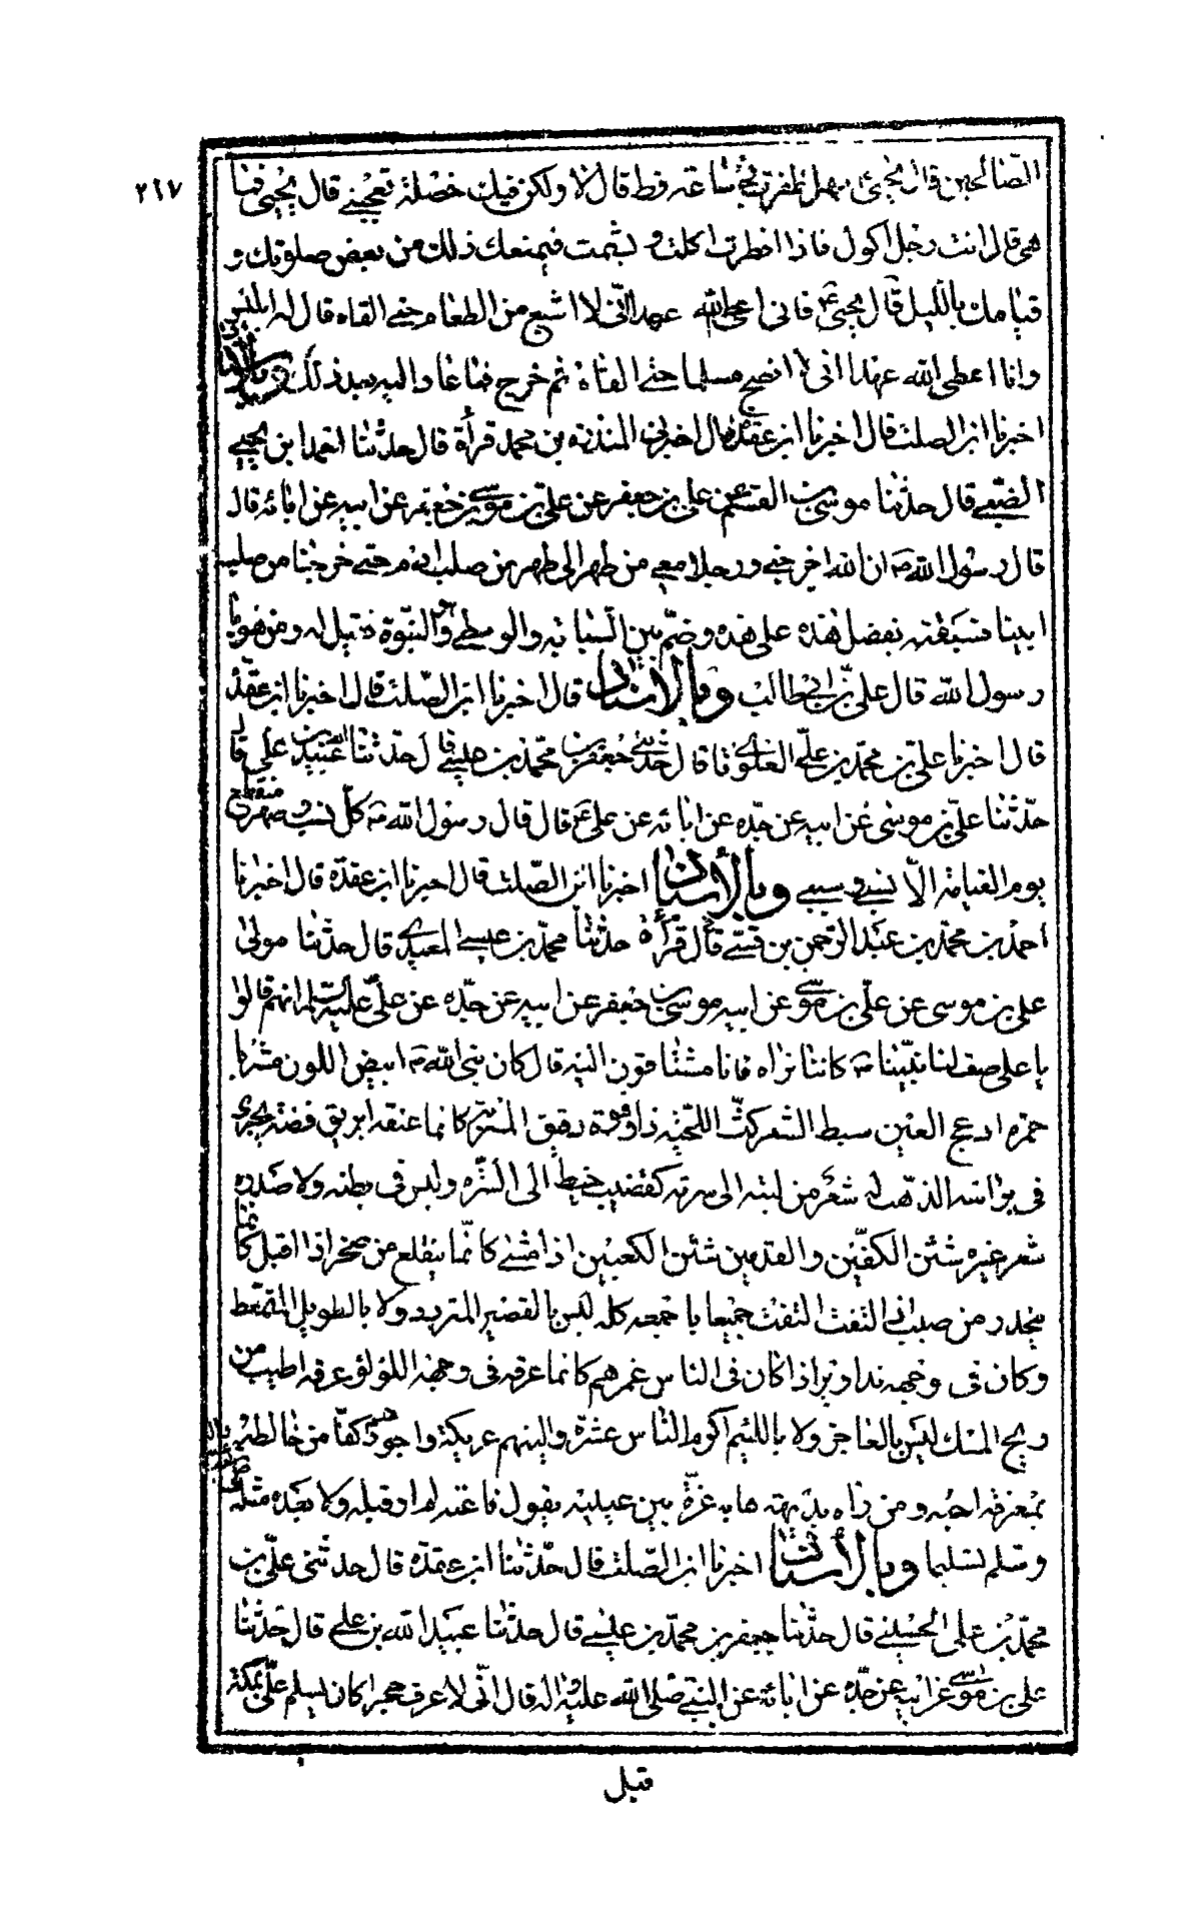 ٢١٧
الصالحين قال يحيى ع فهل ظفرت بي ساعة قط قال لا ولكن فيك خصلة تعجبني قال يحيى فما
هي قال انت رجل اكول فاذا افطرت اكلت و بشمت فيمنعك ذلك من بعض صلوتك و
قيامك بالليل قال يحيى ع فاني اعطي الله عهدا اني لا اشبع من الطعام حتى القاه قال له ابليس
وانا اعطي الله عهدا اني لا انصح مسلما حتى القاه ثم خرج فما عاد اليه بعد ذلك وبالاسناد
اخبرنا ابن الصلت قال اخبرنا ابن عقدة قال اخبرني المنذر بن محمد قرأة قال حدثنا احمد ابن يحيى
الضبي قال حدثنا موسى بن القسم عن علي بن جعفر عن علي بن موسى بن جعفر عن ابيه عن ابائه قال
قال رسول الله ص ان الله اخرجني ورجلا معي من ظهر الى ظهر من صلب ادم حتى خرجنا من صلب
ابينا فسبقته بفضل هذه على هذه وضم بين السبابة والوسطى وهو النبوة فقيل له ومن هو يا
رسول الله قال علي بن ابي طالب وبالاسناد قال اخبرنا ابن الصلت قال اخبرنا ابن عقدة
قال اخبرنا علي بن محمد بن علي العلوي قال حدثني جعفر بن محمد بن عيسى قال حدثنا عبيد الله بن علي قال
حدثنا علي بن موسى عن ابيه عن جده عن ابائه عن علي ع قال قال رسول الله ص كل نسب وصهر منقطع
يوم القيامة الا نسبي و سببي وبالاسناد اخبرنا ابن الصلت قال اخبرنا ابن عقدة قال اخبرنا
احمد بن محمد بن عبد الرحمن بن قتى قال قرأة حدثنا محمد بن عيسى المعبدي قال حدثنا مولى
علي بن موسى عن علي بن موسى عن ابيه موسى بن جعفر عن ابيه عن جده عن علي عليه السلم انهم قالوا
يا علي صف لنا نبينا ص كاننا نراه فانا مشتاقون اليه قال كان نبي الله ص ابيض اللون مشربا
حمرة ادعج العين سبط الشعر كث اللحية ذا وفرة دقيق المسربة كانما عنقه ابريق فضة يجري
في تراقيه الذهب له شعر من لبته الى سرته كقضيب خيط الى السرة وليس في بطنه ولا صدره
شعر غيره شثن الكفين والقدمين شثن الكعبين اذا مشى كانما ينقلع من صخر اذا اقبل كانما
ينحدر من صبب اذا التفت التفت جميعا باجمعه كله ليس بالقصير المتردد ولا بالطويل المتمعط
وكان في وجهه تداوير اذا كان في الناس غمرهم كانما عرقه في وجهه اللؤلؤ عرقه اطيب من
ريح المسك ليس بالعاجز ولا باللئيم اكرم الناس عشرة والينهم عريكة واجودهم كفا من خالطه
بمعرفة احبه ومن رآه بديهة هابه غرة بين عينيه يقول ناعته لم ار قبله ولا بعده مثله
وسلم تسليما وبالاسناد اخبرنا ابن الصلت قال حدثنا ابن عقدة قال حدثني علي بن
محمد بن علي الحسيني قال حدثنا جعفر بن محمد بن عيسى قال حدثنا عبيد الله بن علي قال حدثنا
علي بن موسى عن ابيه عن جده عن ابائه عن النبي صلى الله عليه واله قال اني لاعرف حجرا كان يسلم علي بمكة
قبل